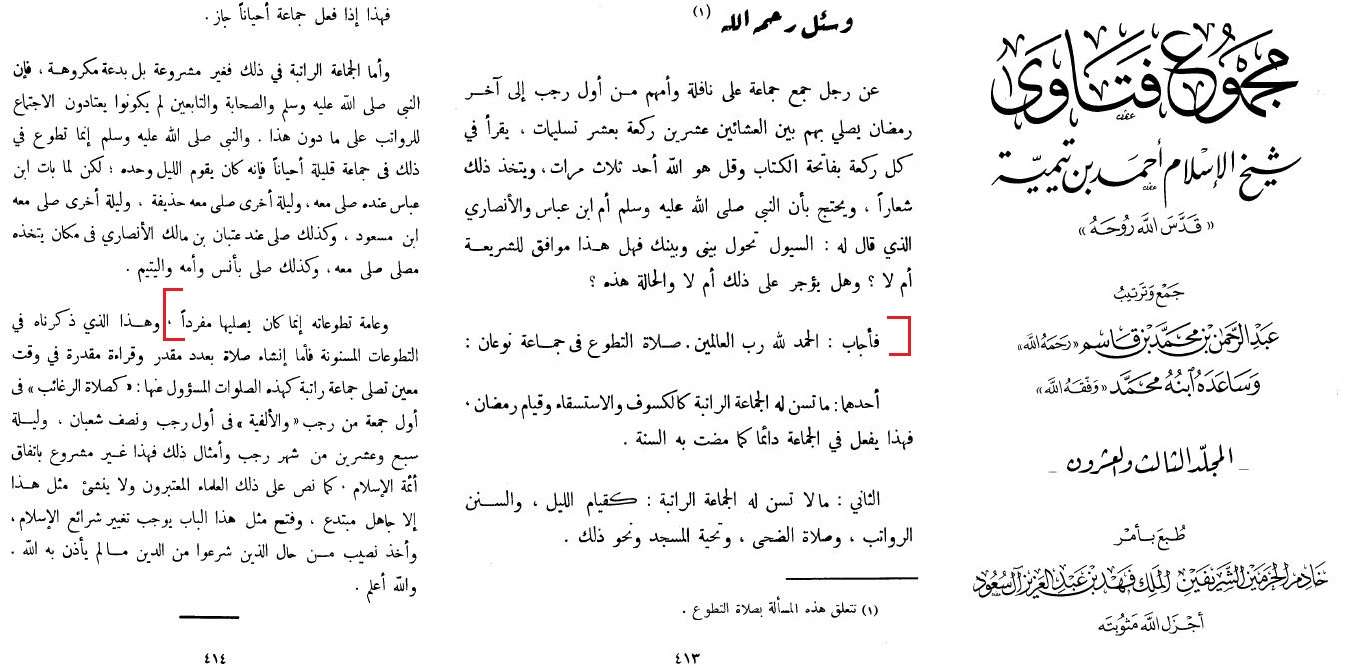 مجموع فتاوى
شيخ الإسلام أحمد بن تيمية
«قدس الله روحه»
جمع وترتيب
عبد الرحمن بن محمد بن قاسم «رحمه الله»
وساعده ابنه محمد «وفقه الله»
المجلد الثالث والعشرون
طبع بأمر
خادم الحرمين الشريفين الملك فهد بن عبد العزيز آل سعود
أجزل الله مثوبته
وسئل رحمه الله (١)
عن رجل جمع جماعة على نافلة وأمهم من أول رجب إلى آخر
رمضان يصلي بهم بين العشائين عشرين ركعة بعشر تسليمات ، يقرأ في
كل ركعة بفاتحة الكتاب وقل هو الله أحد ثلاث مرات، ويتخذ ذلك
شعاراً ، ويحتج بأن النبي صلى الله عليه وسلم أم ابن عباس والأنصاري
الذي قال له : السيول تحول بينى وبينك فهل هذا موافق للشريعة
أم لا ؟ وهل يؤجر على ذلك أم لا والحالة هذه ؟
فأجاب : الحمد لله رب العالمين . صلاة التطوع فى جماعة نوعان :
أحدهما: ما تسن له الجماعة الراتبة كالكسوف والاستسقاء وقيام رمضان .
فهذا يفعل في الجماعة دائما كما مضت به السنة .
الثاني : ما لا تسن له الجماعة الراتبة : كقيام الليل ، والسنن
الرواتب ، وصلاة الضحى ، وتحية المسجد ونحو ذلك .
(١) تتعلق هذه المسألة بصلاة التطوع .
٤١٣
فهذا إذا فعل جماعة أحياناً جاز .
وأما الجماعة الراتبة في ذلك فغير مشروعة بل بدعة مكروهة ، فإن
النبي صلى الله عليه وسلم والصحابة والتابعين لم يكونوا يعتادون الاجتماع
للرواتب على ما دون هذا . والنبي صلى الله عليه وسلم إنما تطوع في
ذلك فى جماعة قليلة أحياناً فإنه كان يقوم الليل وحده ؛ لكن لما بات ابن
عباس عنده صلى معه ، وليلة أخرى صلى معه حذيفة ، وليلة أخرى صلى معه
ابن مسعود ، وكذلك صلى عند عتبان بن مالك الأنصاري فى مكان يتخذه
مصلى صلى معه ، وكذلك صلى بأنس وأمه واليتيم .
وعامة تطوعاته إنما كان يصليها مفرداً ، وهذا الذي ذكرناه في
التطوعات المسنونة فأما إنشاء صلاة بعدد مقدر وقراءة مقدرة في وقت
معين تصلى جماعة راتبة كهذه الصلوات المسؤول عنها : «كصلاة الرغائب» فى
أول جمعة من رجب «والألفية» فى أول رجب ونصف شعبان ، وليلة
سبع وعشرين من شهر رجب وأمثال ذلك فهذا غير مشروع باتفاق
أئمة الإسلام . كما نص على ذلك العلماء المعتبرون ولا ينشئ مثل هذا
إلا جاهل مبتدع ، وفتح مثل هذا الباب يوجب تغيير شرائع الإسلام ،
وأخذ نصيب من حال الذين شرعوا من الدين ما لم يأذن به الله .
والله أعلم .
٤١٤